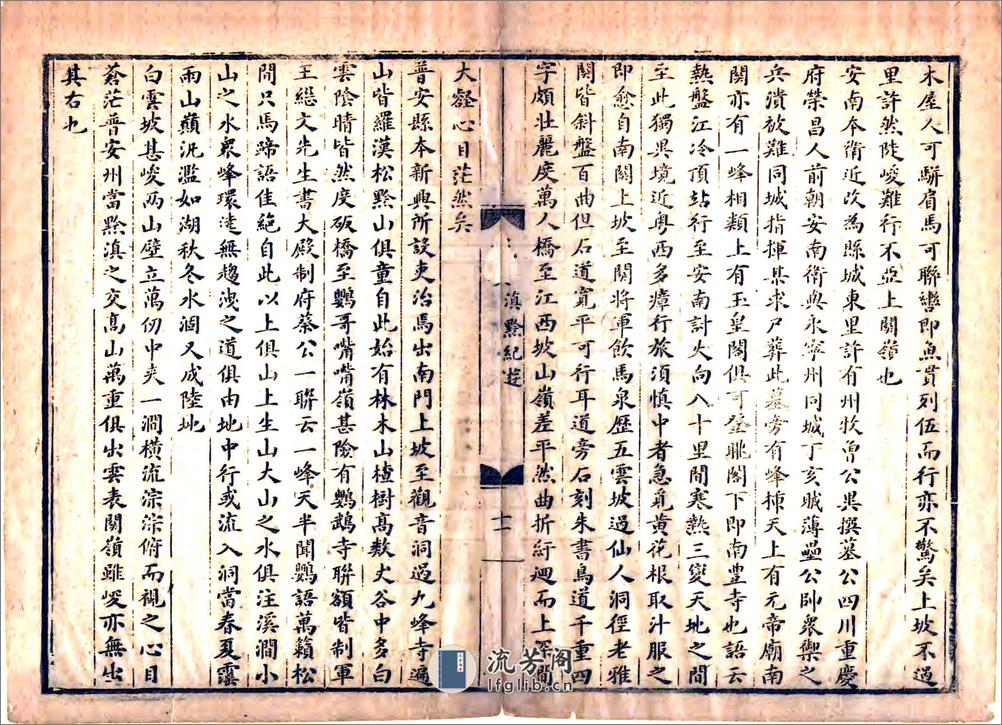 木屋人可騈肩馬可聯轡即魚貫列伍而行亦不驚矣上坡不過
里許然陡峻難行不亞上關嶺也
安南本衛近改為縣城東里許有州牧曾公異撰墓公四川重慶
府榮昌人前朝安南衛典永寧州同城丁亥賊薄壘公帥衆禦之
兵潰被難同城指揮某求尸葬此墓旁有峰插天上有元帝廟南
關亦有一峰相類上有玉皇閣俱可登眺閣下即南豊寺也語云
熱盤江冷頂站行至安南計火向八十里間寒熱三變天地之間
至此獨異境近粤西多瘴行旅須慎中者急覓黃花根取汁服之
即愈自南關上坡至關將軍飲馬泉歷五雲坡過仙人洞徑老雅
關皆斜盤百曲但石道寬平可行耳道旁石刻朱書鳥道千重四
字頗壮麗度萬人橋至江西坡山嶺差平然曲折紆廻而上
滇黔紀遊
十一
大壑心目茫然矣
普安縣本新興所設吏治馬出南門上坡至觀音洞過九峰寺遍
山皆羅漢松黔山俱童自此始有林木山楂樹髙数丈谷中多白
雲陰晴皆然度板橋至鸚哥嘴嘴嶺甚險有鸚鵡寺聯額皆制軍
王繼文先生書大殿制府蔡公一聯云一峰天半聞鸚語萬籟松
間只馬蹄語佳絶自此以上俱山上生山大山之水俱注溪澗小
山之水衆峰環遶無趨洩之道俱由地中行或流入洞當春夏霪
雨山巔汎濫如湖秋冬水涸又成陸地
白雲坡甚峻两山壁立萬仞中夾一澗橫流淙淙俯而視之心目
蒼茫普安州當黔滇之交髙山萬重俱出雲表關嶺雖峻亦無出
其右也
流芳阁
lfglib.cn